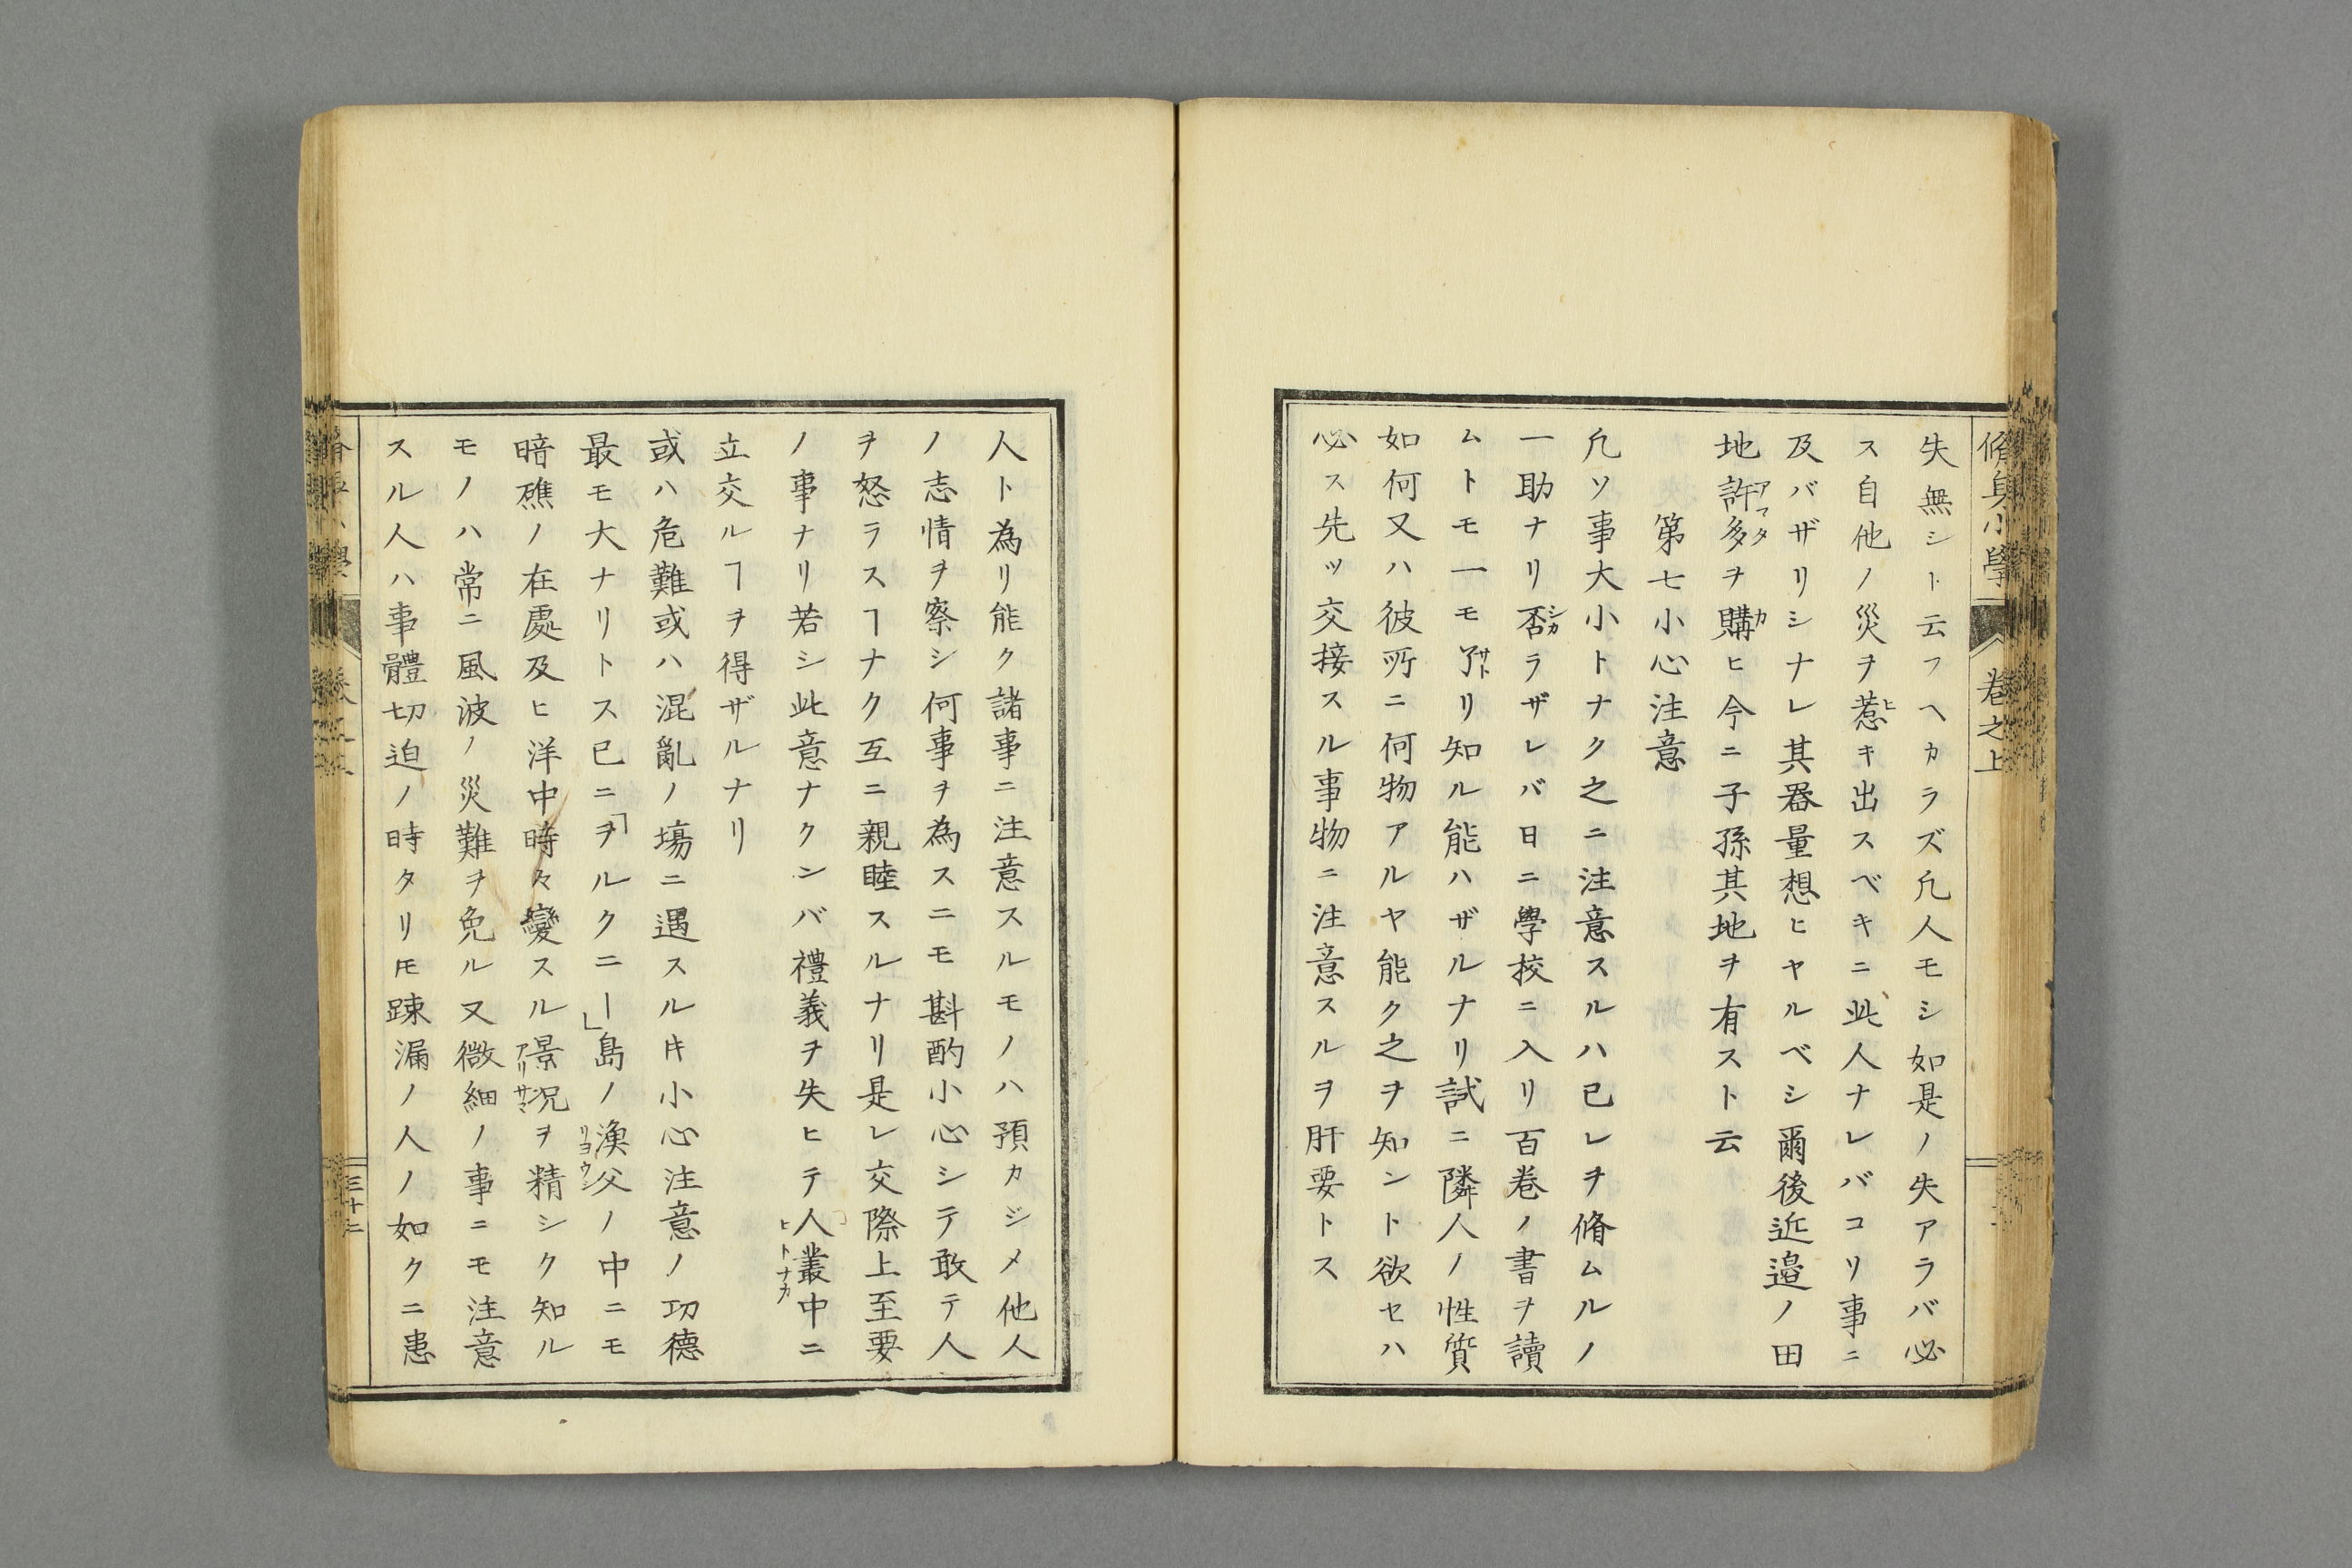 脩身小學 卷之上
失無シト云フヘカラズ凢人モシ如是ノ失アラバ必
ス自他ノ災ヲ惹キ出スベキニ此人ナレバコリ事ニ
及バザリシナレ其器量想ヒヤルベシ爾後近邉ノ田
地許多ヲ購ヒ今ニ子孫其地ヲ有スト云
第七小心注意
凢ソ事大小トナク之ニ注意スルハ已レヲ脩ムルノ
一助ナリ否ラザレバ日ニ學校ニ入リ百巻ノ書ヲ讀
ムトモ一モ了リ知ル能ハザルナリ試ニ隣人ノ性質
如何又ハ彼所ニ何物アルヤ能ク之ヲ知ント欲セハ
必ス先ッ交接スル事物ニ注意スルヲ肝要トス
人ト為リ能ク諸事ニ注意スルモノハ預カジメ他人
ノ志情ヲ察シ何事ヲ為スニモ斟酌小心シテ敢テ人
ヲ怒ラスヿナク互ニ親睦スルナリ是レ交際上至要
ノ事ナリ若シ此意ナクンバ禮義ヲ失ヒテ人叢中ニ
立交ルヿヲ得ザルナリ
或ハ危難或ハ混亂ノ塲ニ遇スル𪜈小心注意ノ功德
最モ大ナリトス已ニ「ヲルクニー」島ノ漁父ノ中ニモ
暗礁ノ在處及ヒ洋中時々變スル景況ヲ精シク知ル
モノハ常ニ風波ノ災難ヲ免ル又微細ノ事ニモ注意
スル人ハ事體切迫ノ時タリ𪜈踈漏ノ人ノ如クニ患
三十二